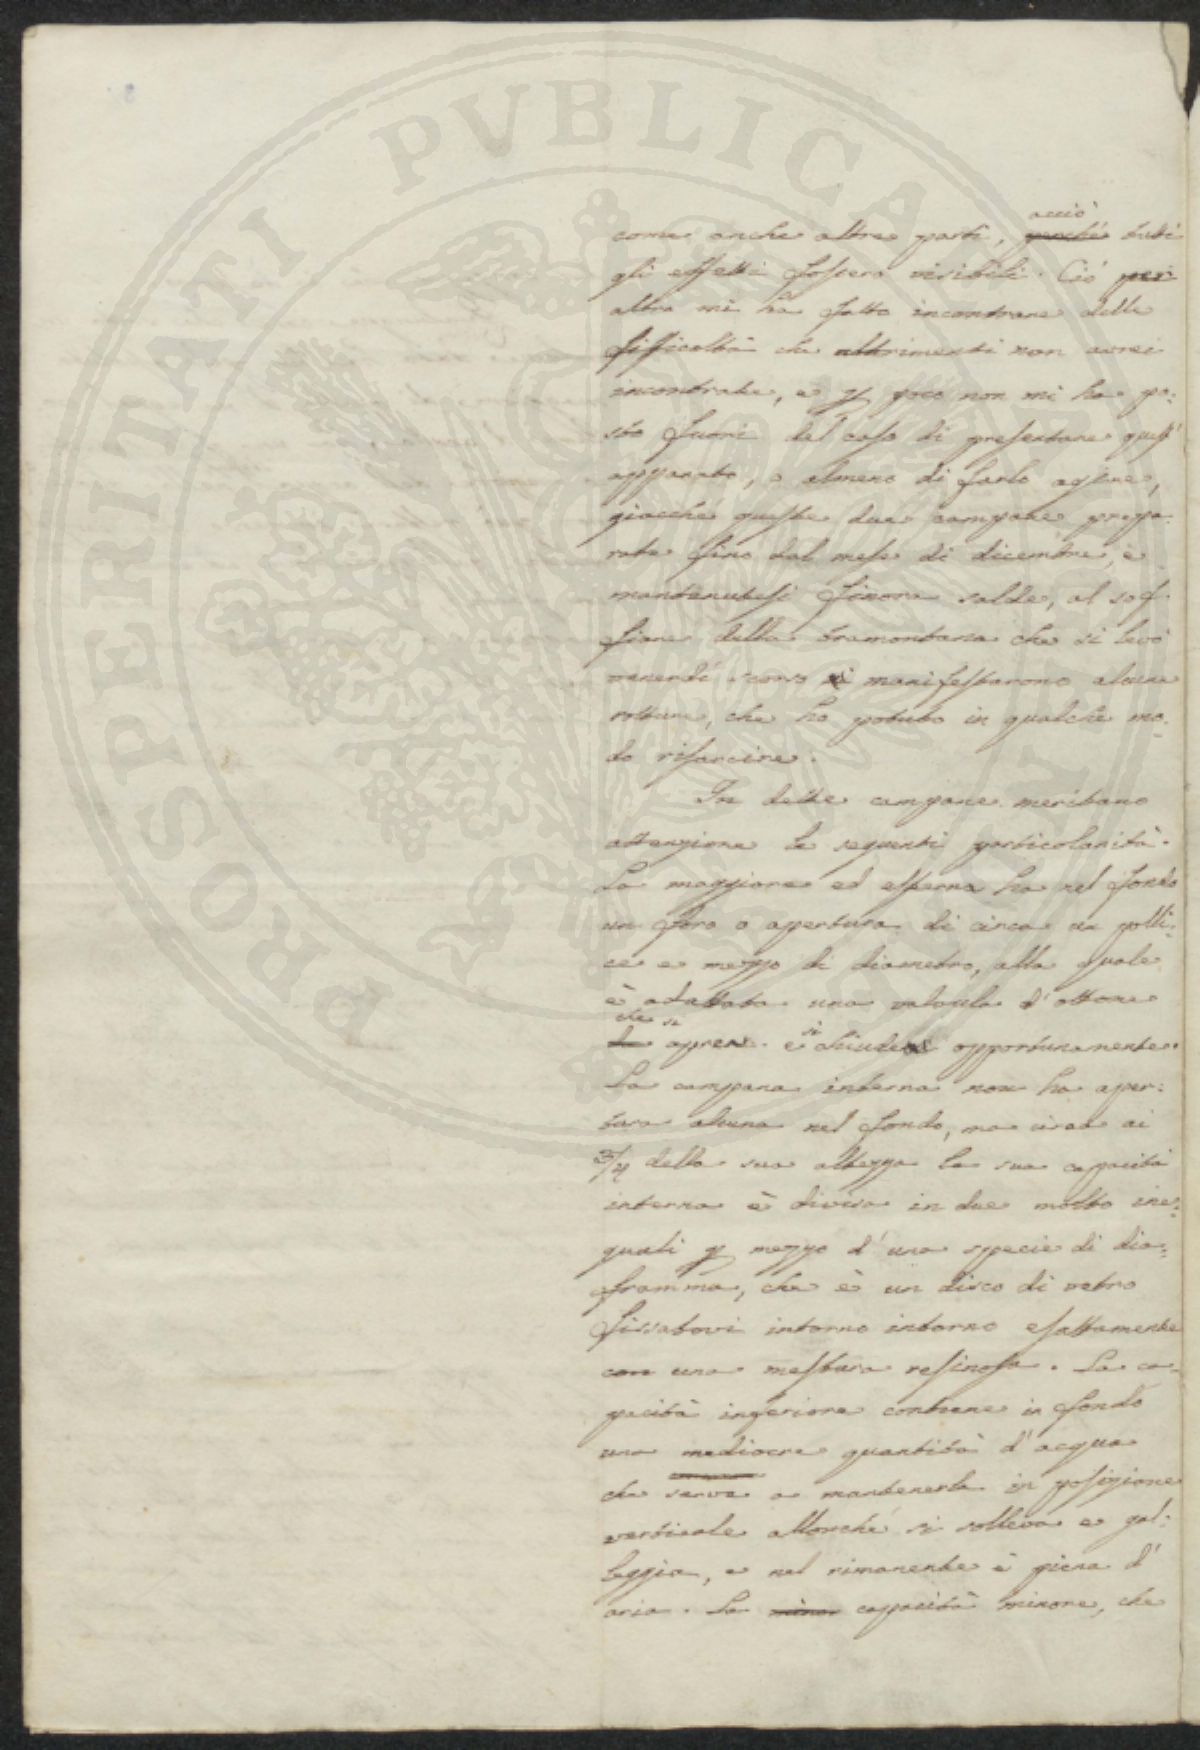 come anche altre parti, acciò perché tutti
gli effetti fossero visibili. Ciò per
altro mi ha fatto incontrare delle
difficoltà che altrimenti non avrei
incontrate, e p poco non mi ha po-
sto fuori del caso di presentare quest'
apparato, o almeno di farlo agire,
giacché queste due campane prepa-
rate fino dal mese di dicembre, e
mantenutesi finora salde, al sof-
fiare della tramontana che si levò
venerdì scorso si manifestarono alcune
rotture, che ho potuto in qualche mo-
do risarcire.
In dette campane meritano
attenzione le seguenti particolarità.
La maggiore ed esterna ha nel fondo
un foro o apertura di circa un polli-
ce e mezzo di diametro, alla quale
è adattata una valvula d'ottone
che si apre e si chiude opportunamente.
La campana interna non ha aper-
tura alcuna nel fondo, ma circa ai
3/4 della sua altezza la sua capacità
interna è divisa in due molto ine-
guali p mezzo d'una specie di dia-
framma, che è un disco di vetro
fissatovi intorno intorno esattamente
con una mestura resinosa. La ca-
pacità inferiore contiene in fondo
una mediocre quantità d'acqua
che serve a mantenerla in posizione
verticale allorché si solleva e gal-
leggia, e nel rimanente è piena d'
aria. La minor capacità minore, che
PROSPERITATI PVBLICAE